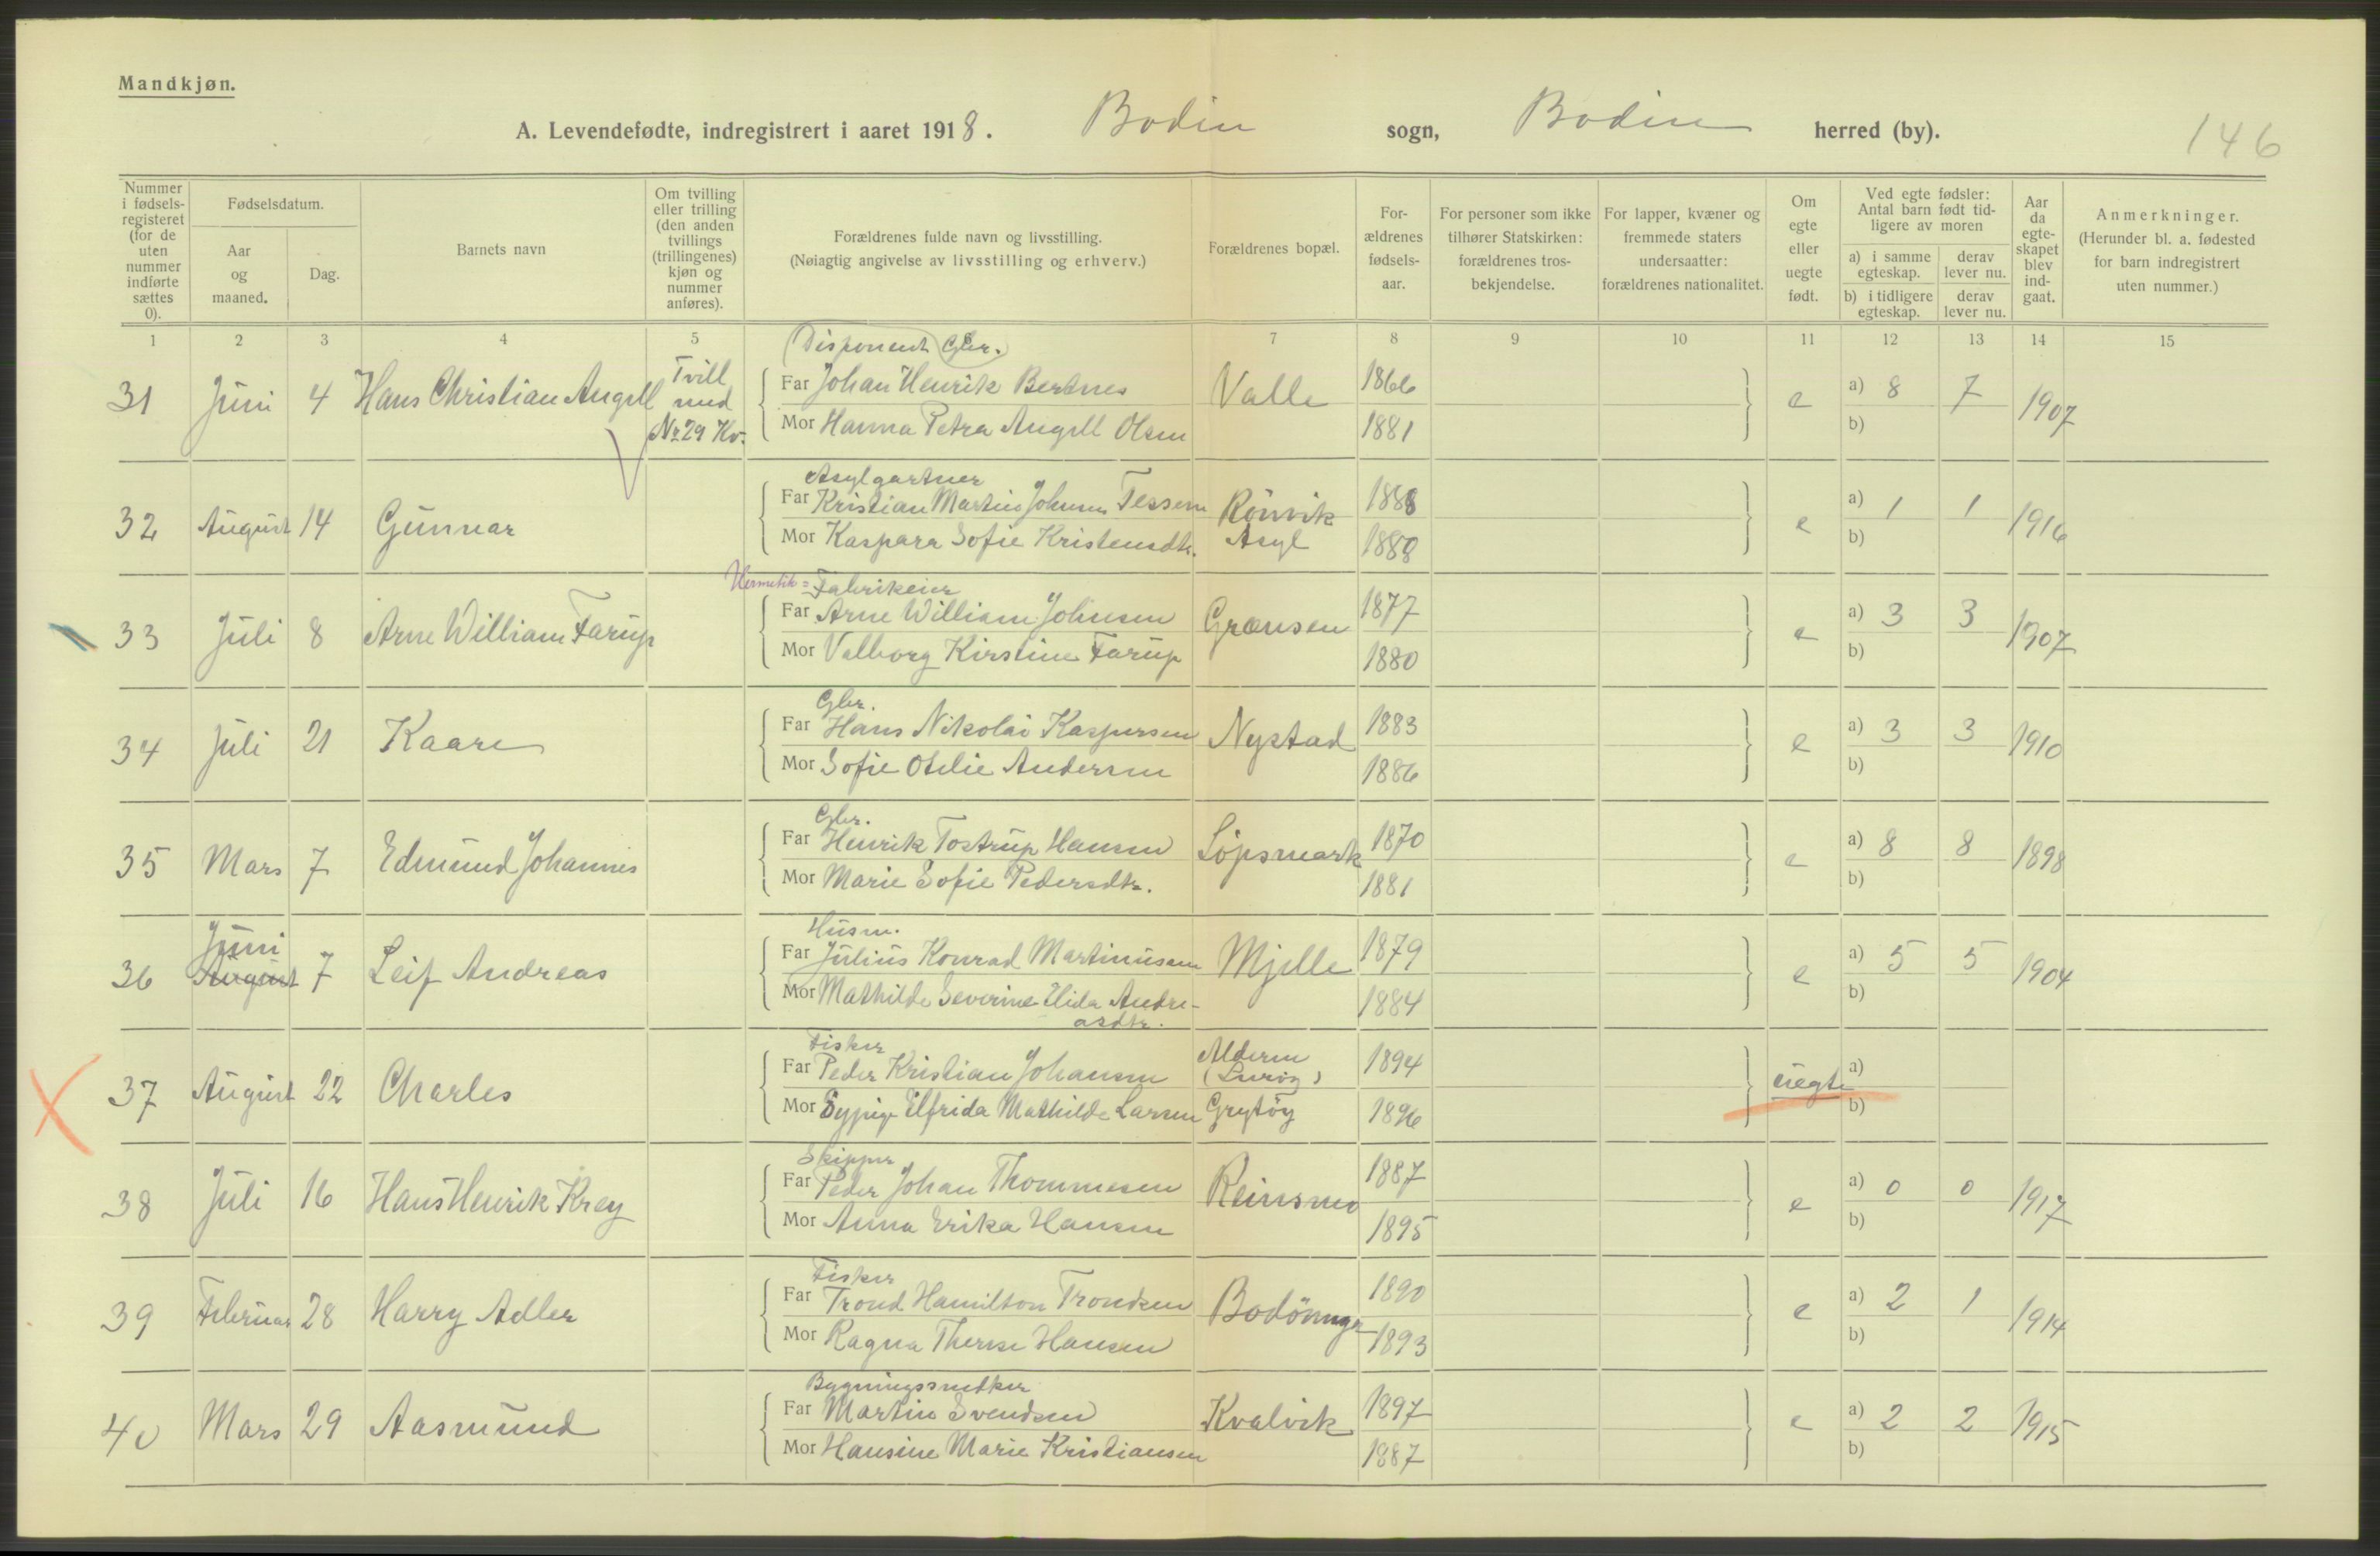 Mandkjøn.
A. Levendefødte, indregistrert i aaret 1918. Bodin sogn, Bodin herred (by). 146
Nummer i fødsels-registeret (for de uten nummer indførte sættes 0).
Fødselsdatum.
Aar og maaned.
Dag.
Barnets navn
Om tvilling eller trilling (den anden tvillings (trillingenes) kjøn og nummer anføres).
Forældrenes fulde navn og livsstilling.
(Nøiagtig angivelse av livsstilling og erhverv.)
Forældrenes bopæl.
For-ældrenes fødsels-aar.
For personer som ikke tilhører Statskirken: forældrenes tros-bekjendelse.
For lapper, kvæner og fremmede staters undersaatter: forældrenes nationalitet.
Om egte eller uegte født.
Ved egte fødsler: Antal barn født tid-ligere av moren
a) i samme egteskap. derav lever nu.
b) i tidligere egteskap. derav lever nu.
Aar da egte-skapet blev ind-gaat.
Anmerkninger.
(Herunder bl. a. fødested for barn indregistrert uten nummer.)
1 2 3 4 5 6 7 8 9 10 11 12 13 14 15
Disponent Gbr.
31 Juni 4 Hans Christian Angell Tvill med Nr 29 Kv. Far Johan Henrik Bertnes Valle 1866 e a) 8 7 1907
Mor Hanna Petra Angell Olsen 1881 b)
Asylgartner
32 August 14 Gunnar Far Kristian Martin Johnsen Tessem Rönvik Asyl 1888 e a) 1 1 1916
Mor Kaspara Sofie Kristensdtr. 1888 b)
Hermetik= Fabrikeier
33 Juli 8 Arne William Farup Far Arne William Johnsen Grænsen 1877 e a) 3 3 1907
Mor Valborg Kirstine Farup 1880 b)
Gbr.
34 Juli 21 Kaare Far Hans Nikolai Kaspersen Nystad 1883 e a) 3 3 1910
Mor Sofie Otelie Andersen 1886 b)
Gbr.
35 Mars 7 Edmund Johannes Far Henrik Tostrup Hansen Löpsmark 1870 e a) 8 8 1898
Mor Marie Sofie Pedersdtr. 1881 b)
Husm.
36 Juni August 7 Leif Andreas Far Julius Konrad Martinusen Mjelle 1879 e a) 5 5 1904
Mor Mathilde Severine Elida Andre-asdtr. 1884 b)
Fisker
37 August 22 Charles Far Peder Kristian Johansen Alderen (Luröy) 1894 uegte a)
Mor Elfrida Mathilde Larsen Grytöy 1896 b)
Skipper
38 Juli 16 Hans Henrik Krey Far Peder Johan Thommesen Reinsmo 1887 e a) 0 0 1917
Mor Anna Erika Hansen 1895 b)
Fisker
39 Februar 28 Harry Adler Far Trond Hamilton Trondsen 1890 e a) 2 1 1914
Mor Ragna Therese Hansen 1893 b)
Bygningssnedker
40 Mars 29 Aasmund Far Martin Svendsen Kvalvik 1897 e a) 2 2 1915
Mor Hansine Marie Kristiansen 1887 b)